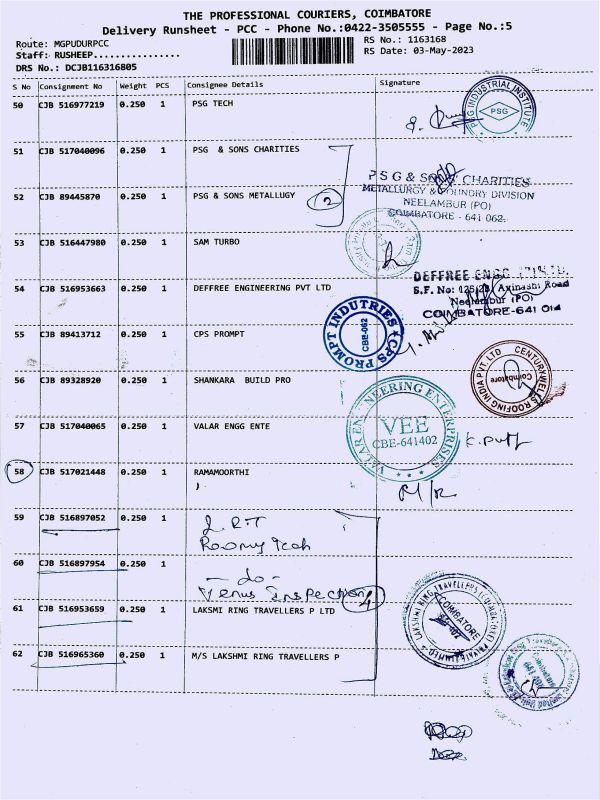 THE PROFESSIONAL COURIERS, COIMBATORE
Delivery Runsheet - PCC - Phone No.:0422-3505555 - Page No.:5
Route: MGPUDURPCC
RS No.: 1163168
Staff: RUSHEEP...............
RS Date: 03-May-2023
DRS No.: DCJB116316805
S No Consignment No Weight PCS Consignee Details Signature
50 CJB 516977219 0.250 1 PSG TECH
PSG INDUSTRIAL INSTITUTE
PSG
51 CJB 517040096 0.250 1 PSG & SONS CHARITIES
PSG & SONS CHARITIES
METALLURGY & FOUNDRY DIVISION
NEELAMBUR (PO)
COIMBATORE - 641 062.
52 CJB 89445870 0.250 1 PSG & SONS METALLUGY
2
53 CJB 516447980 0.250 1 SAM TURBO
54 CJB 516953663 0.250 1 DEFFREE ENGINEERING PVT LTD
DEFFREE ENGG
S.F. No: Avinashi Road
Neelambur (PO)
COIMBATORE-641 014
55 CJB 89413712 0.250 1 CPS PROMPT
CPS PROMPT INDUTRIES
CBE-062
56 CJB 89328920 0.250 1 SHANKARA BUILD PRO
ROOFING INDIA PVT. LTD
Coimbatore
57 CJB 517040065 0.250 1 VALAR ENGG ENTE
VALAR ENGINEERING ENTERPRISES
VEE
CBE-641402
58 CJB 517021448 0.250 1 RAMAMOORTHI
59 CJB 516897052 0.250 1
60 CJB 516897954 0.250 1 - do -
Venus Inspection
61 CJB 516953659 0.250 1 LAKSMI RING TRAVELLERS P LTD
4
LAKSHMI RING TRAVELLERS (COIMBATORE) PRIVATE LIMITED
COIMBATORE
62 CJB 516965360 0.250 1 M/S LAKSHMI RING TRAVELLERS P